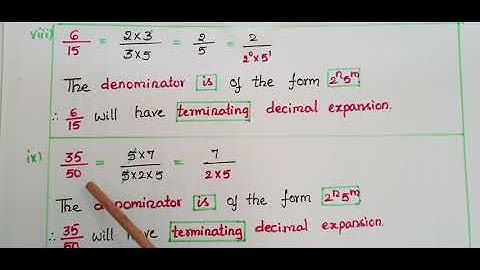 viii) 6/15 = 2×3/3×5 = 2/5 = 2/2⁰×5¹
The denominator is of the form 2ⁿ5ᵐ
∴ 6/15 will have terminating decimal expansion.
ix) 35/50 = 5×7/5×2×5 = 7/2×5
The denominator is of the form 2ⁿ5ᵐ
∴ 35/50 will have terminating decimal expansion.